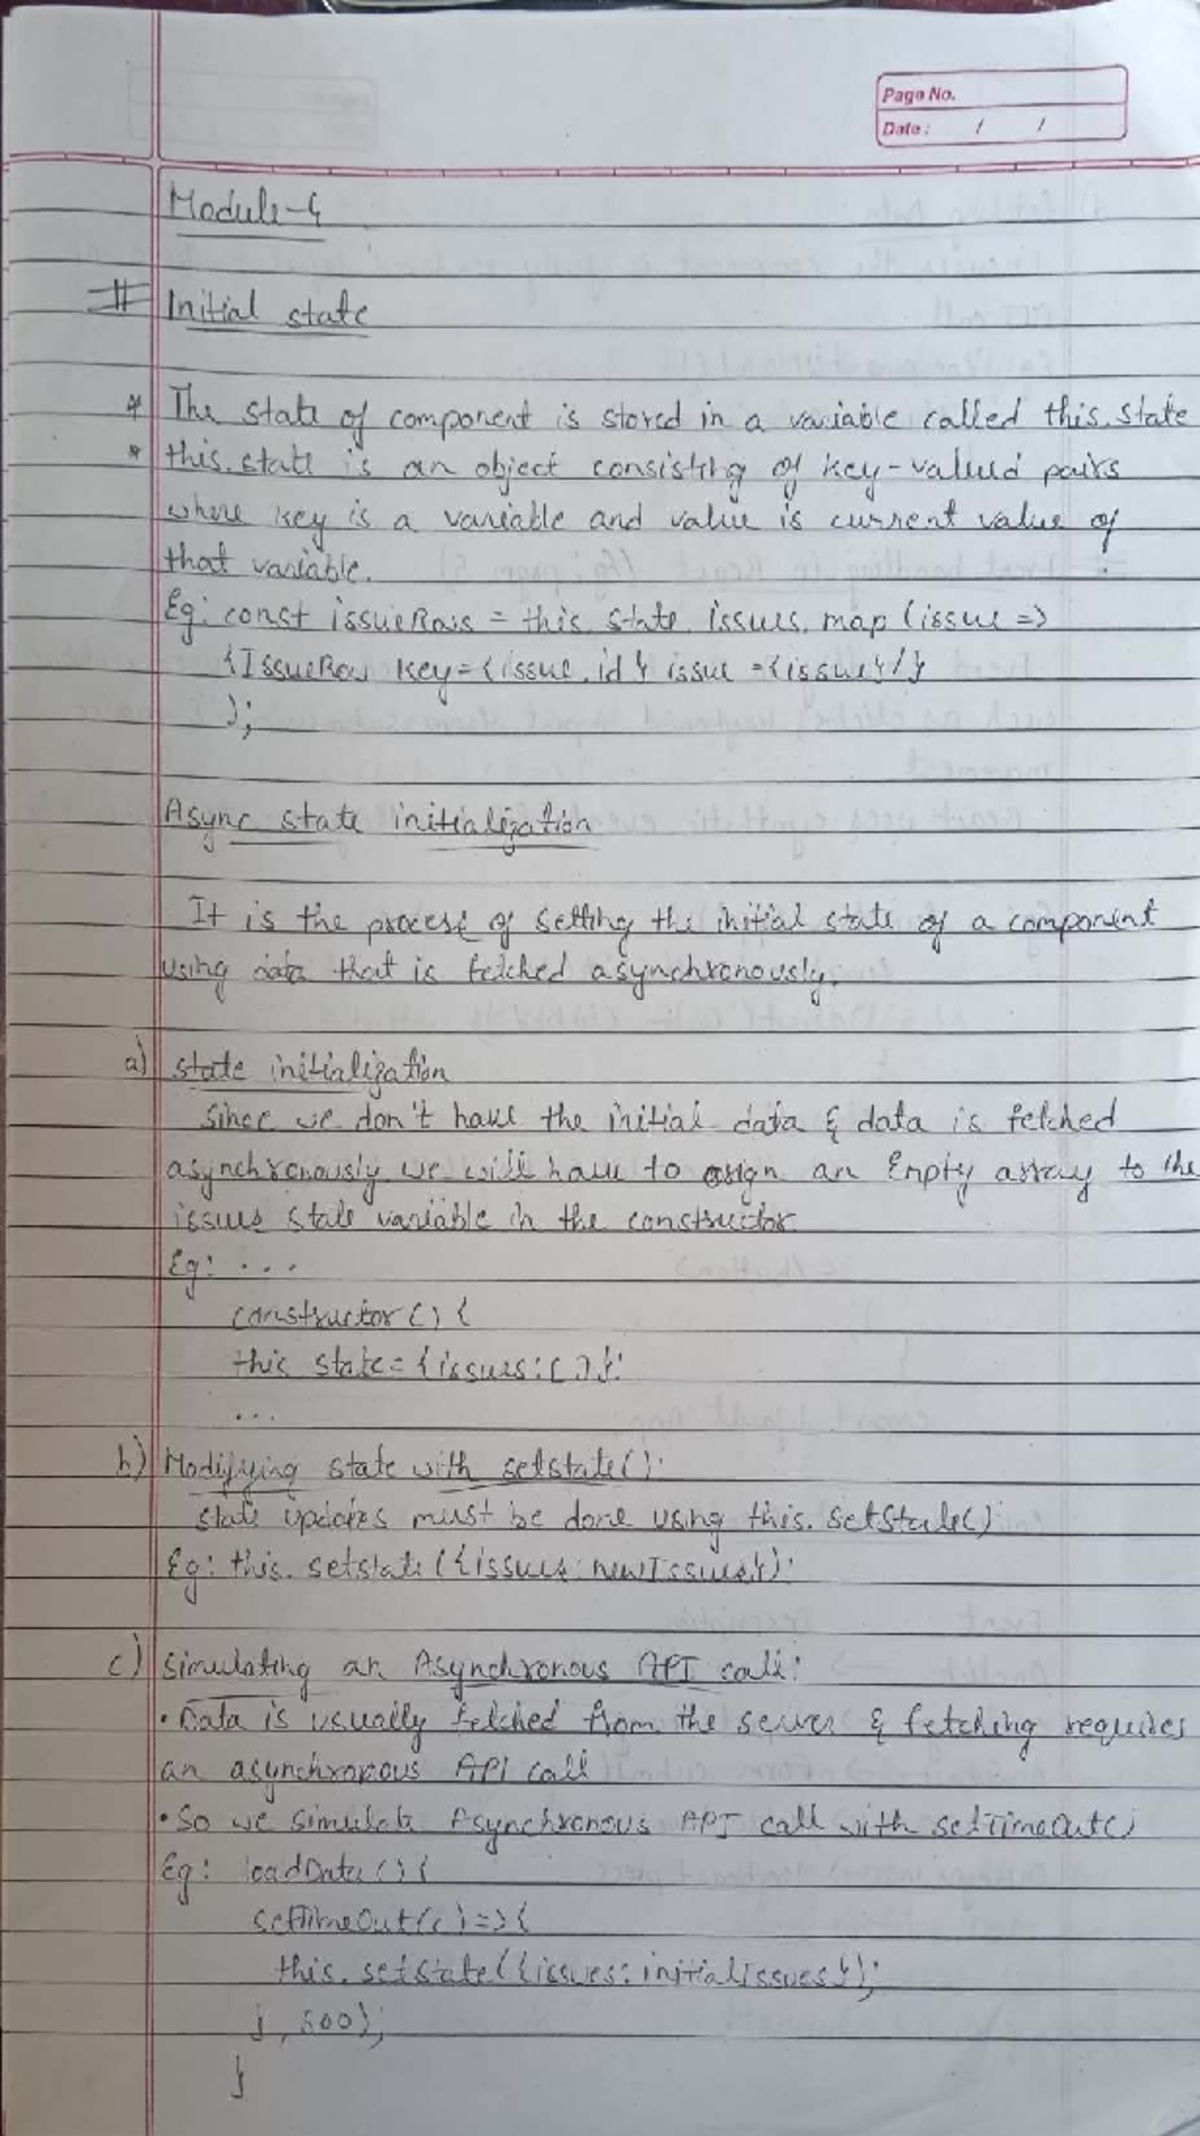 Page No.
Date: / /
Module-4
# Initial state
* The state of component is stored in a variable called this.state
* this.state is an object consisting of key-valued pairs
where key is a variable and value is current value of
that variable.
Eg: const issueRows = this.state.issues.map(issue =>
{IssueRow key={issue.id} issue={issue}/}
);
Async state initialization
It is the process of setting the initial state of a component
using data that is fetched asynchronously.
a) state initialization
Since we don't have the initial data & data is fetched
asynchronously we will have to asign an Empty array to the
issues state variable in the constructor
Eg: ...
constructor() {
this state={issues:[]};
...
b) Modifying state with setstate():
state updates must be done using this.setState()
Eg: this.setstate({issues:newIssues});
c) Simulating an Asynchronous API call:
• Data is usually fetched from the server & fetching requires
an asynchronous API call
• So we simulate Asynchronous API call with setTimeOut()
Eg: loadData(){
setTimeOut(()=>{
this.setstate({issues:initialIssues});
}, 500);
}